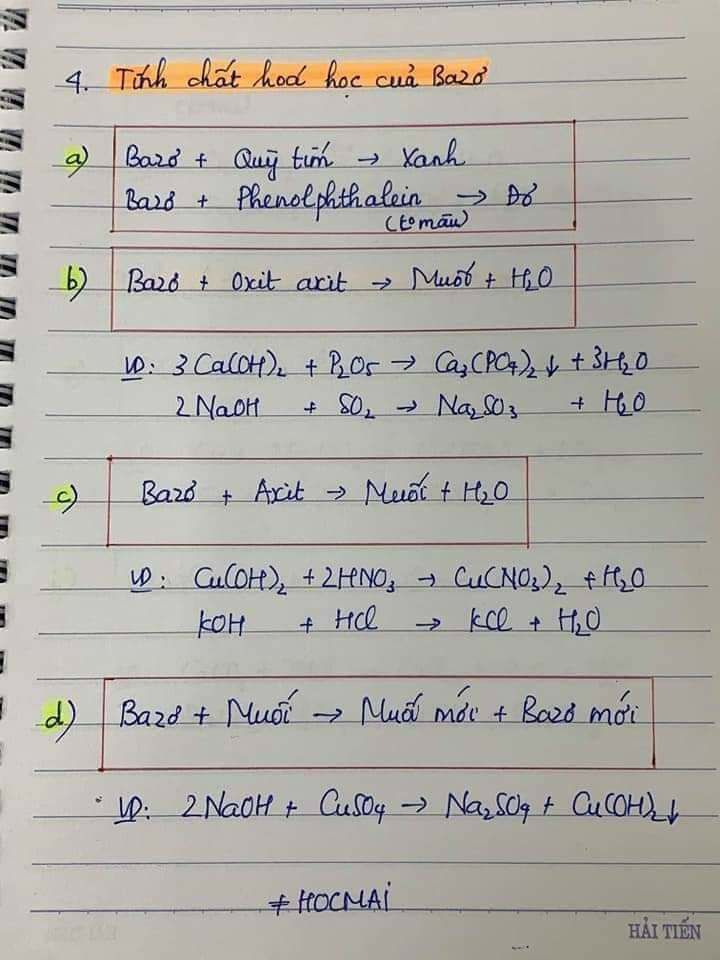 4. Tính chất hoá học của Bazơ
a) Bazơ + Quỳ tím → Xanh
Bazơ + Phenolphthalein → Đỏ
(to màu)
b) Bazơ + Oxit axit → Muối + H₂O
VD: 3Ca(OH)₂ + P₂O₅ → Ca₃(PO₄)₂↓ + 3H₂O
2NaOH + SO₂ → Na₂SO₃ + H₂O
c) Bazơ + Axit → Muối + H₂O
VD: Cu(OH)₂ + 2HNO₃ → Cu(NO₃)₂ + H₂O
KOH + HCl → KCl + H₂O
d) Bazơ + Muối → Muối mới + Bazơ mới
VD: 2NaOH + CuSO₄ → Na₂SO₄ + Cu(OH)₂↓
≠ HOCMAI
HẢI TIẾN